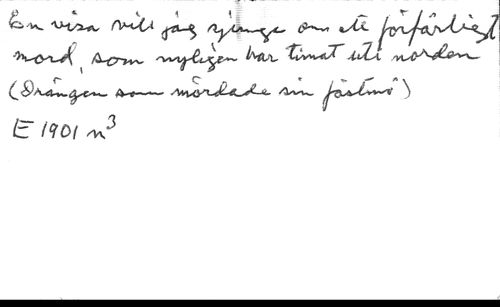 En visa vill jag sjunga om ett förfärligt
mord, som nyligen har timat uti norden
(Drängen som mördade sin fästmö)
E 1901 n³